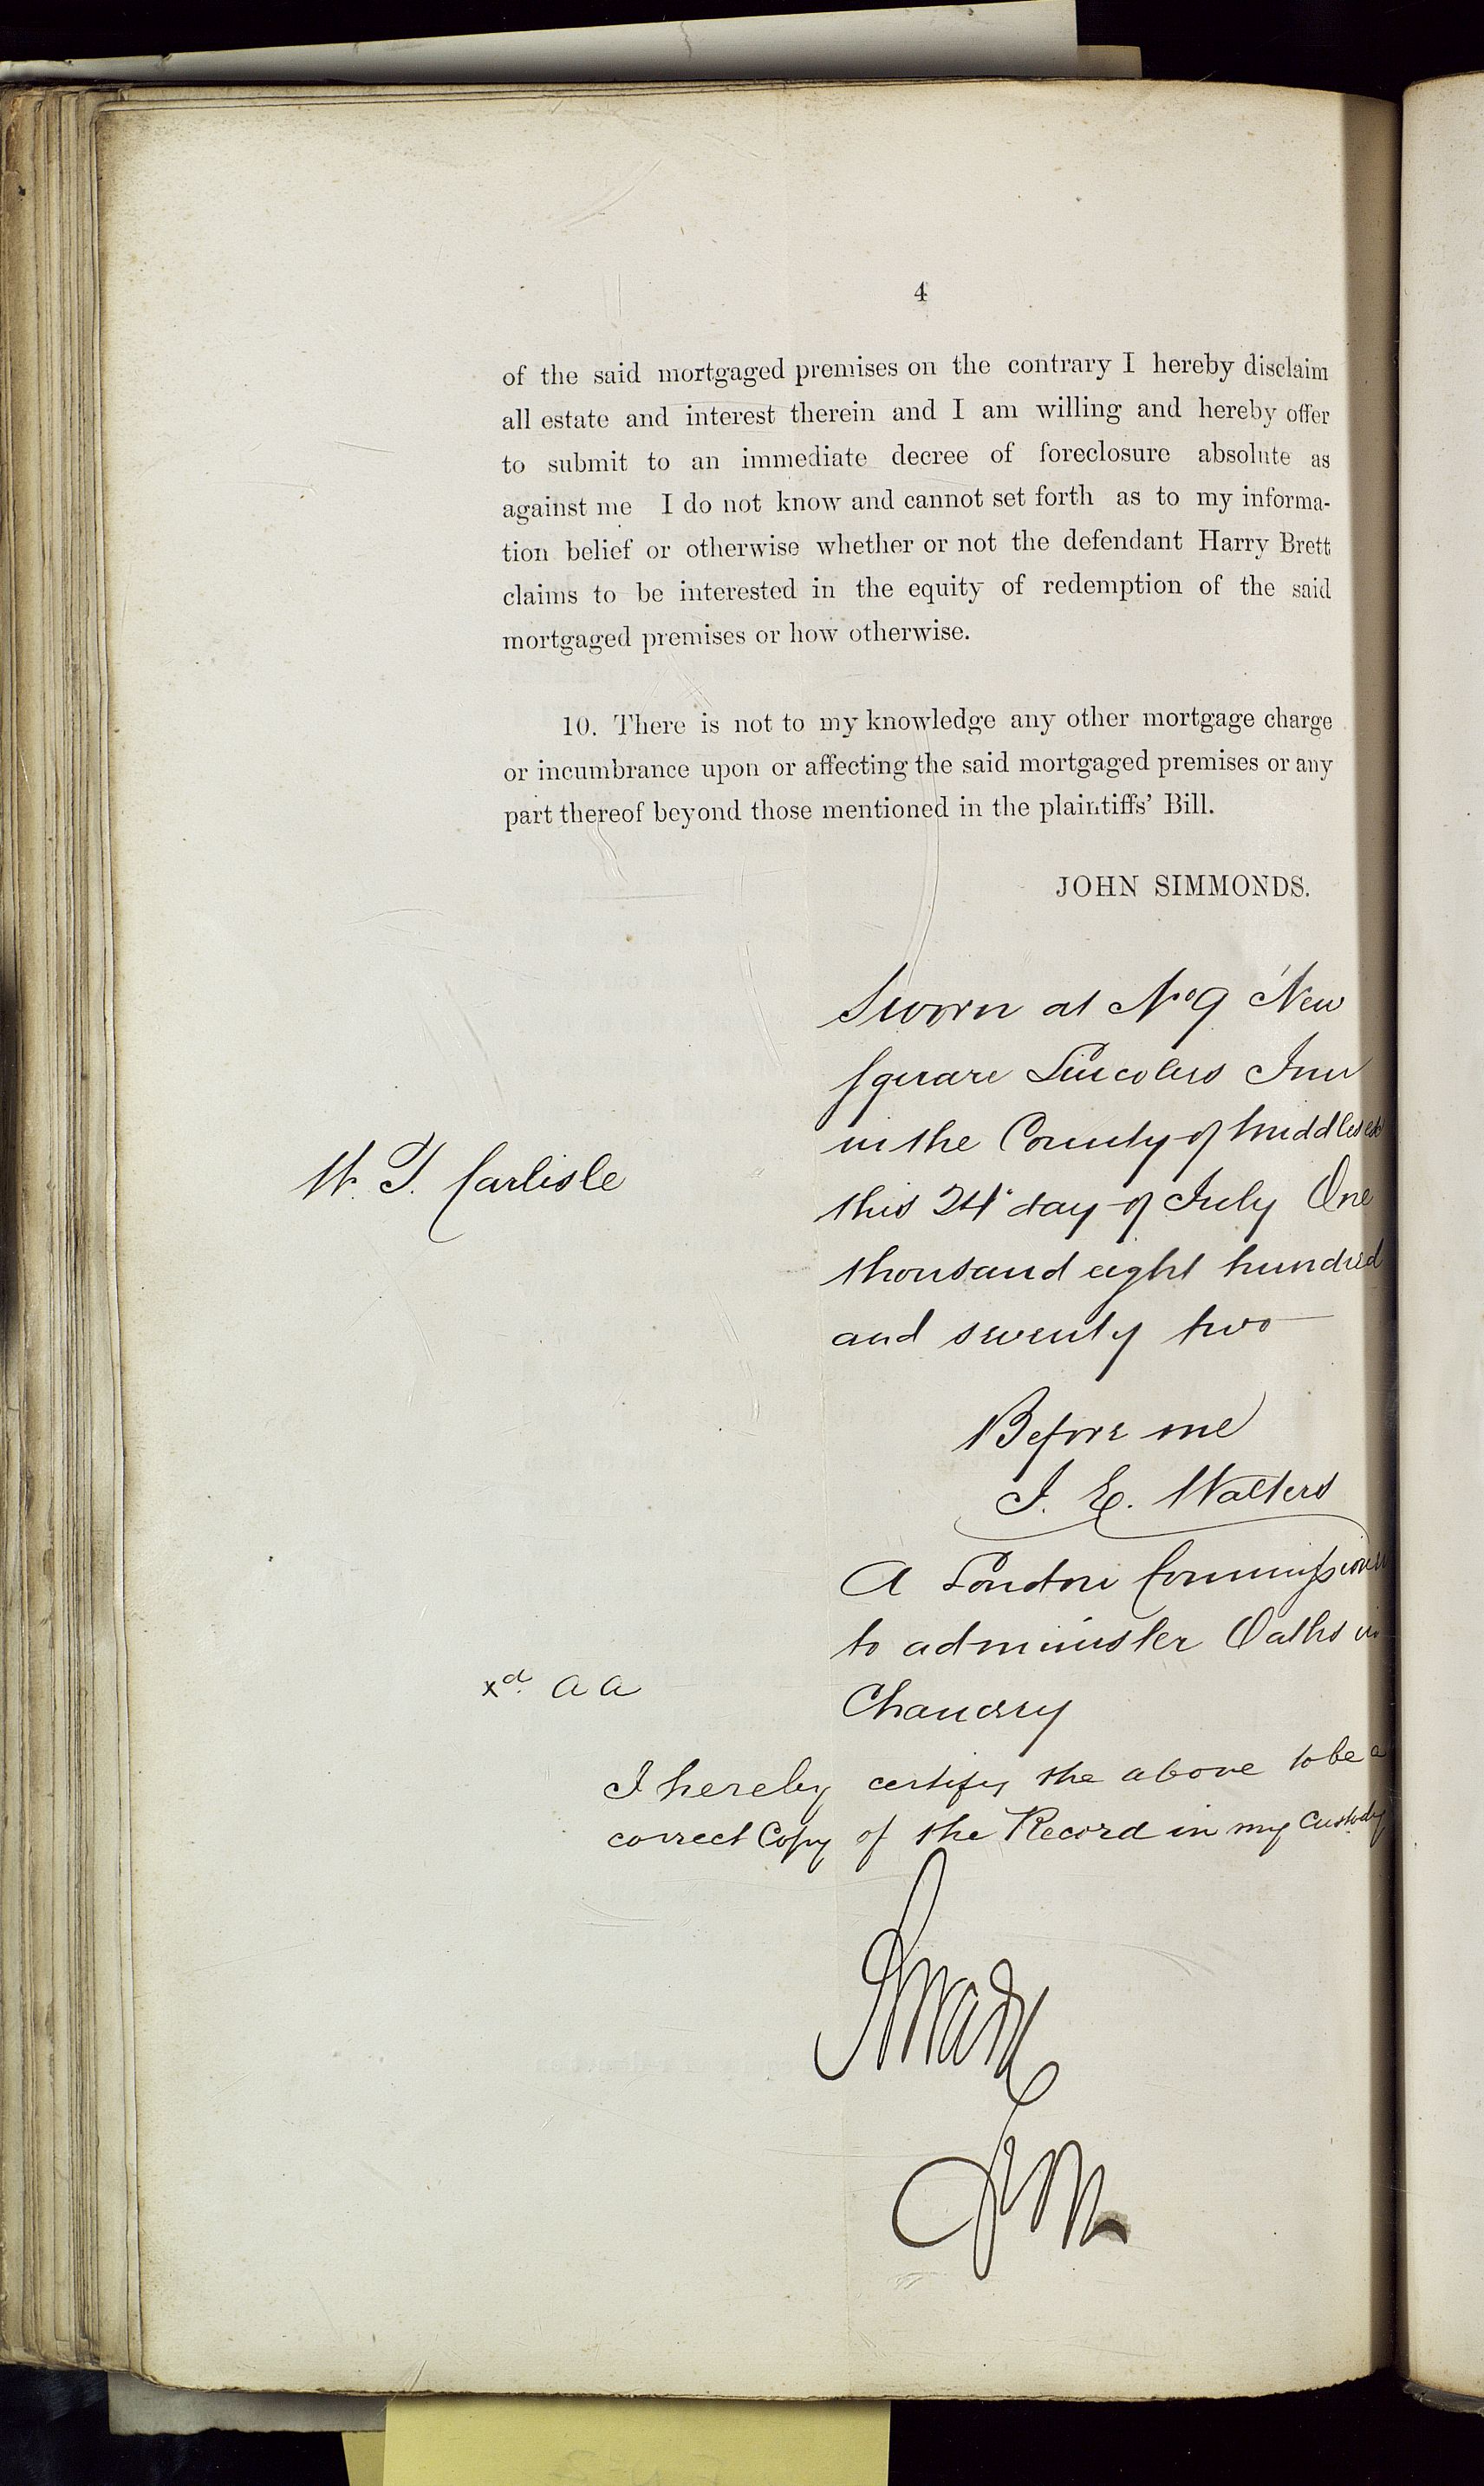 4
of the said mortgaged premises on the contrary I hereby disclaim
all estate and interest therein and I am willing and hereby offer
to submit to an immediate decree of foreclosure absolute as
against me I do not know and cannot set forth as to my informa-
tion belief or otherwise whether or not the defendant Harry Brett
claims to be interested in the equity of redemption of the said
mortgaged premises or how otherwise.
10. There is not to my knowledge any other mortgage charge
or incumbrance upon or affecting the said mortgaged premises or any
part thereof beyond those mentioned in the plaintiffs' Bill.
JOHN SIMMONDS.
Sworn at No 9 New
Square Lincolns Inn
in the County of Middlesex
this 24 day of July One
thousand eight hundred
and seventy two
W. T. Carlisle
Before me
J. E. Walters
A London Commissioner
to administer Oaths in
Chancery
xd. a a
I hereby certify the above to be a
correct Copy of the Record in my Custody